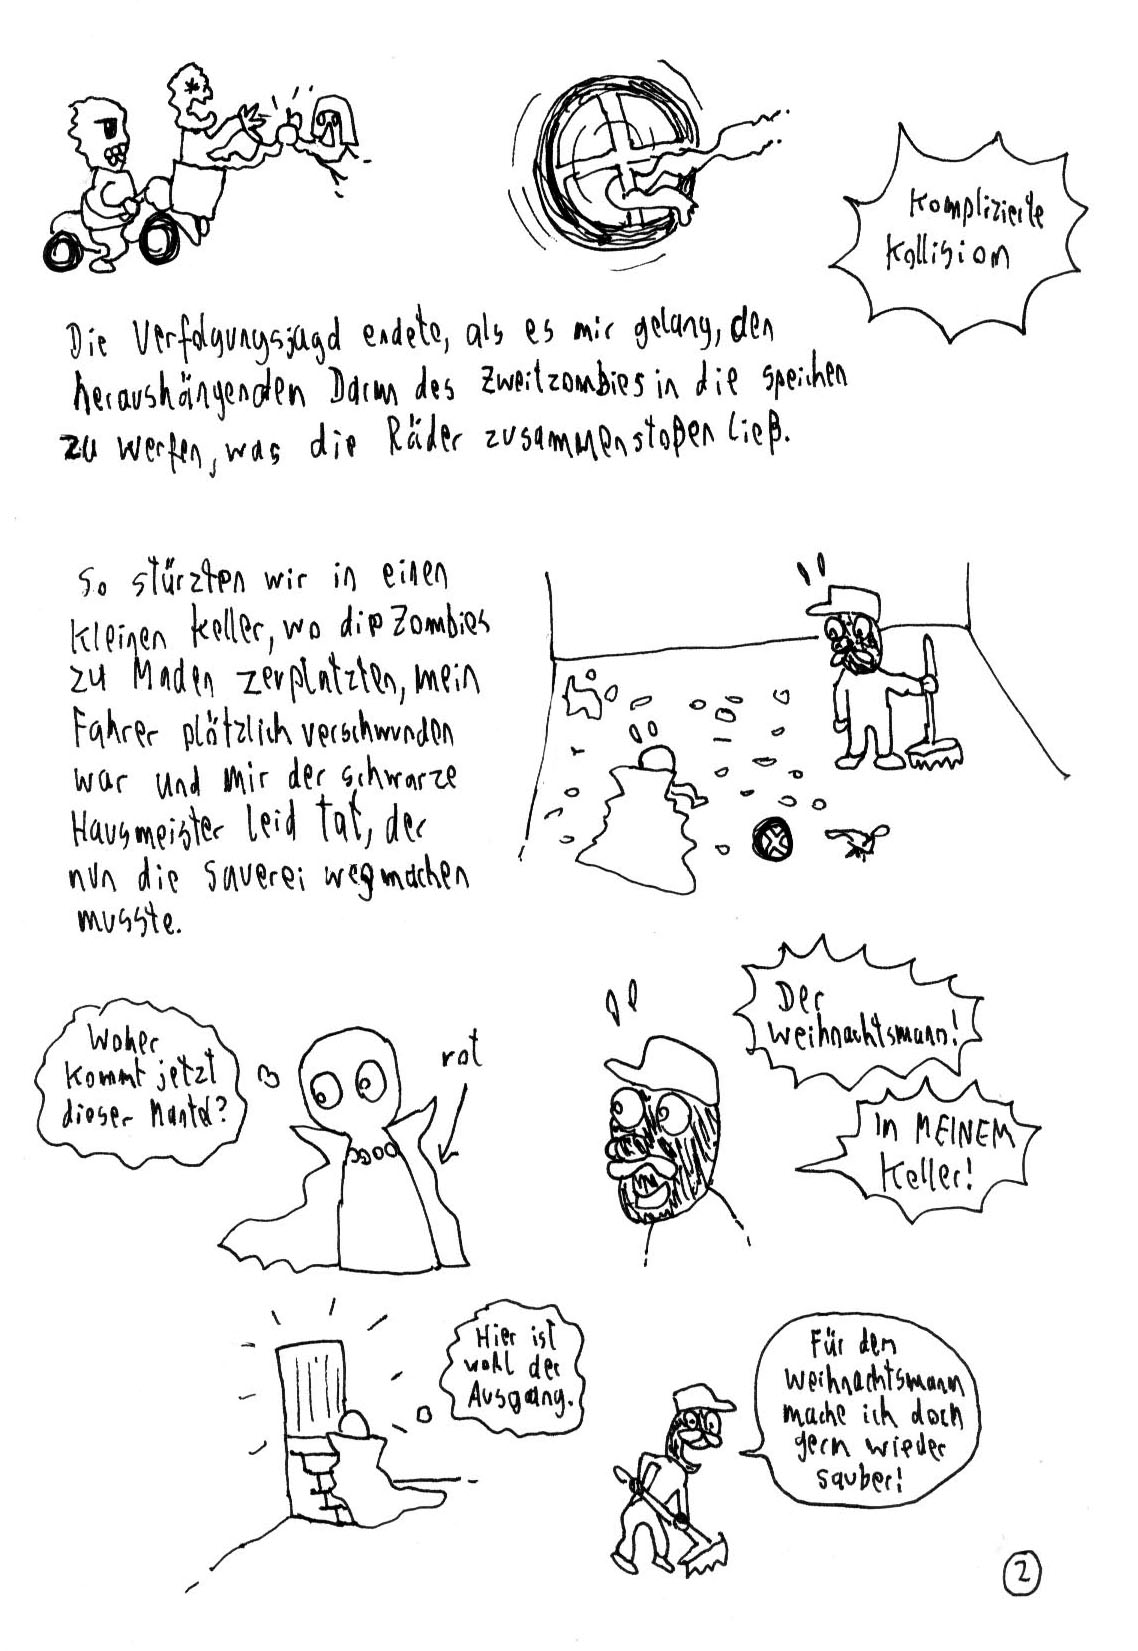 Komplizierte
Kollision
Die Verfolgungsjagd endete, als es mir gelang, den
heraushängenden Darm des Zweitzombies in die Speichen
zu werfen, was die Räder zusammenstoßen ließ.
So stürzten wir in einen
kleinen Keller, wo die Zombies
zu Maden zerplatzten, mein
Fahrer plötzlich verschwunden
war und mir der schwarze
Hausmeister leid tat, der
nun die Sauerei wegmachen
musste.
Woher
kommt jetzt
dieser Mantel?
rot
Der
Weihnachtsmann!
In MEINEM
Keller!
Hier ist
wohl der
Ausgang.
Für den
Weihnachtsmann
mache ich doch
gern wieder
sauber!
2